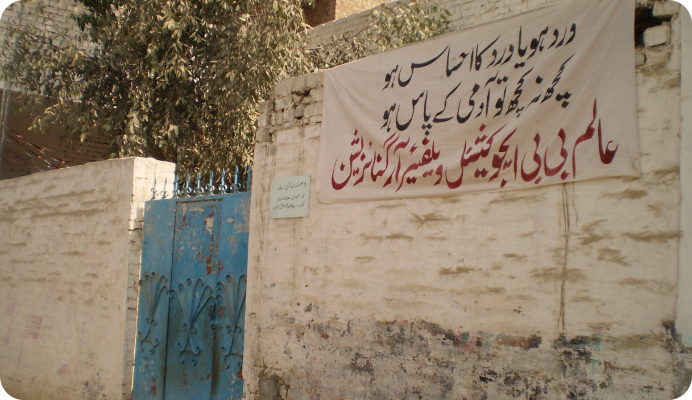 درد ہو یا درد کا احساس ہو
کچھ نہ کچھ تو آدمی کے پاس ہو
عالم بی بی ایجوکیشنل ویلفیئر آرگنائزیشن